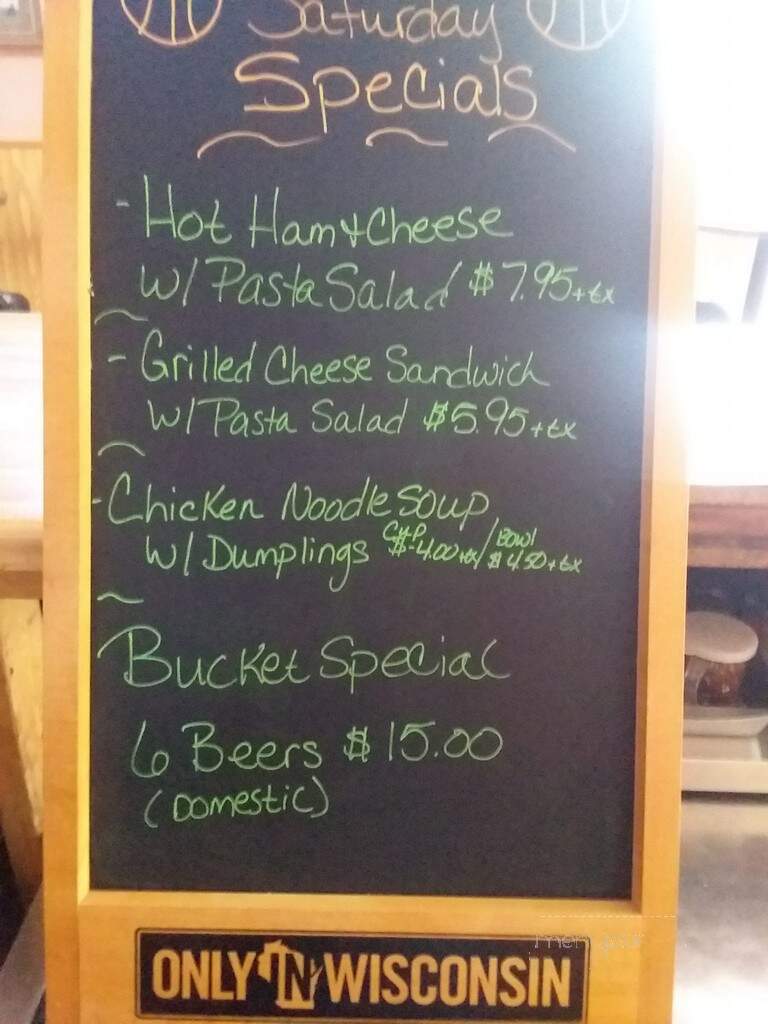 Saturday
Specials
- Hot Ham & Cheese
w/ Pasta Salad $7.95 + tx
- Grilled Cheese Sandwich
w/ Pasta Salad $5.95 + tx
- Chicken Noodle Soup
w/ Dumplings Cup $4.00 + tx / Bowl $4.50 + tx
Bucket Special
6 Beers $15.00
(Domestic)
ONLY IN WISCONSIN